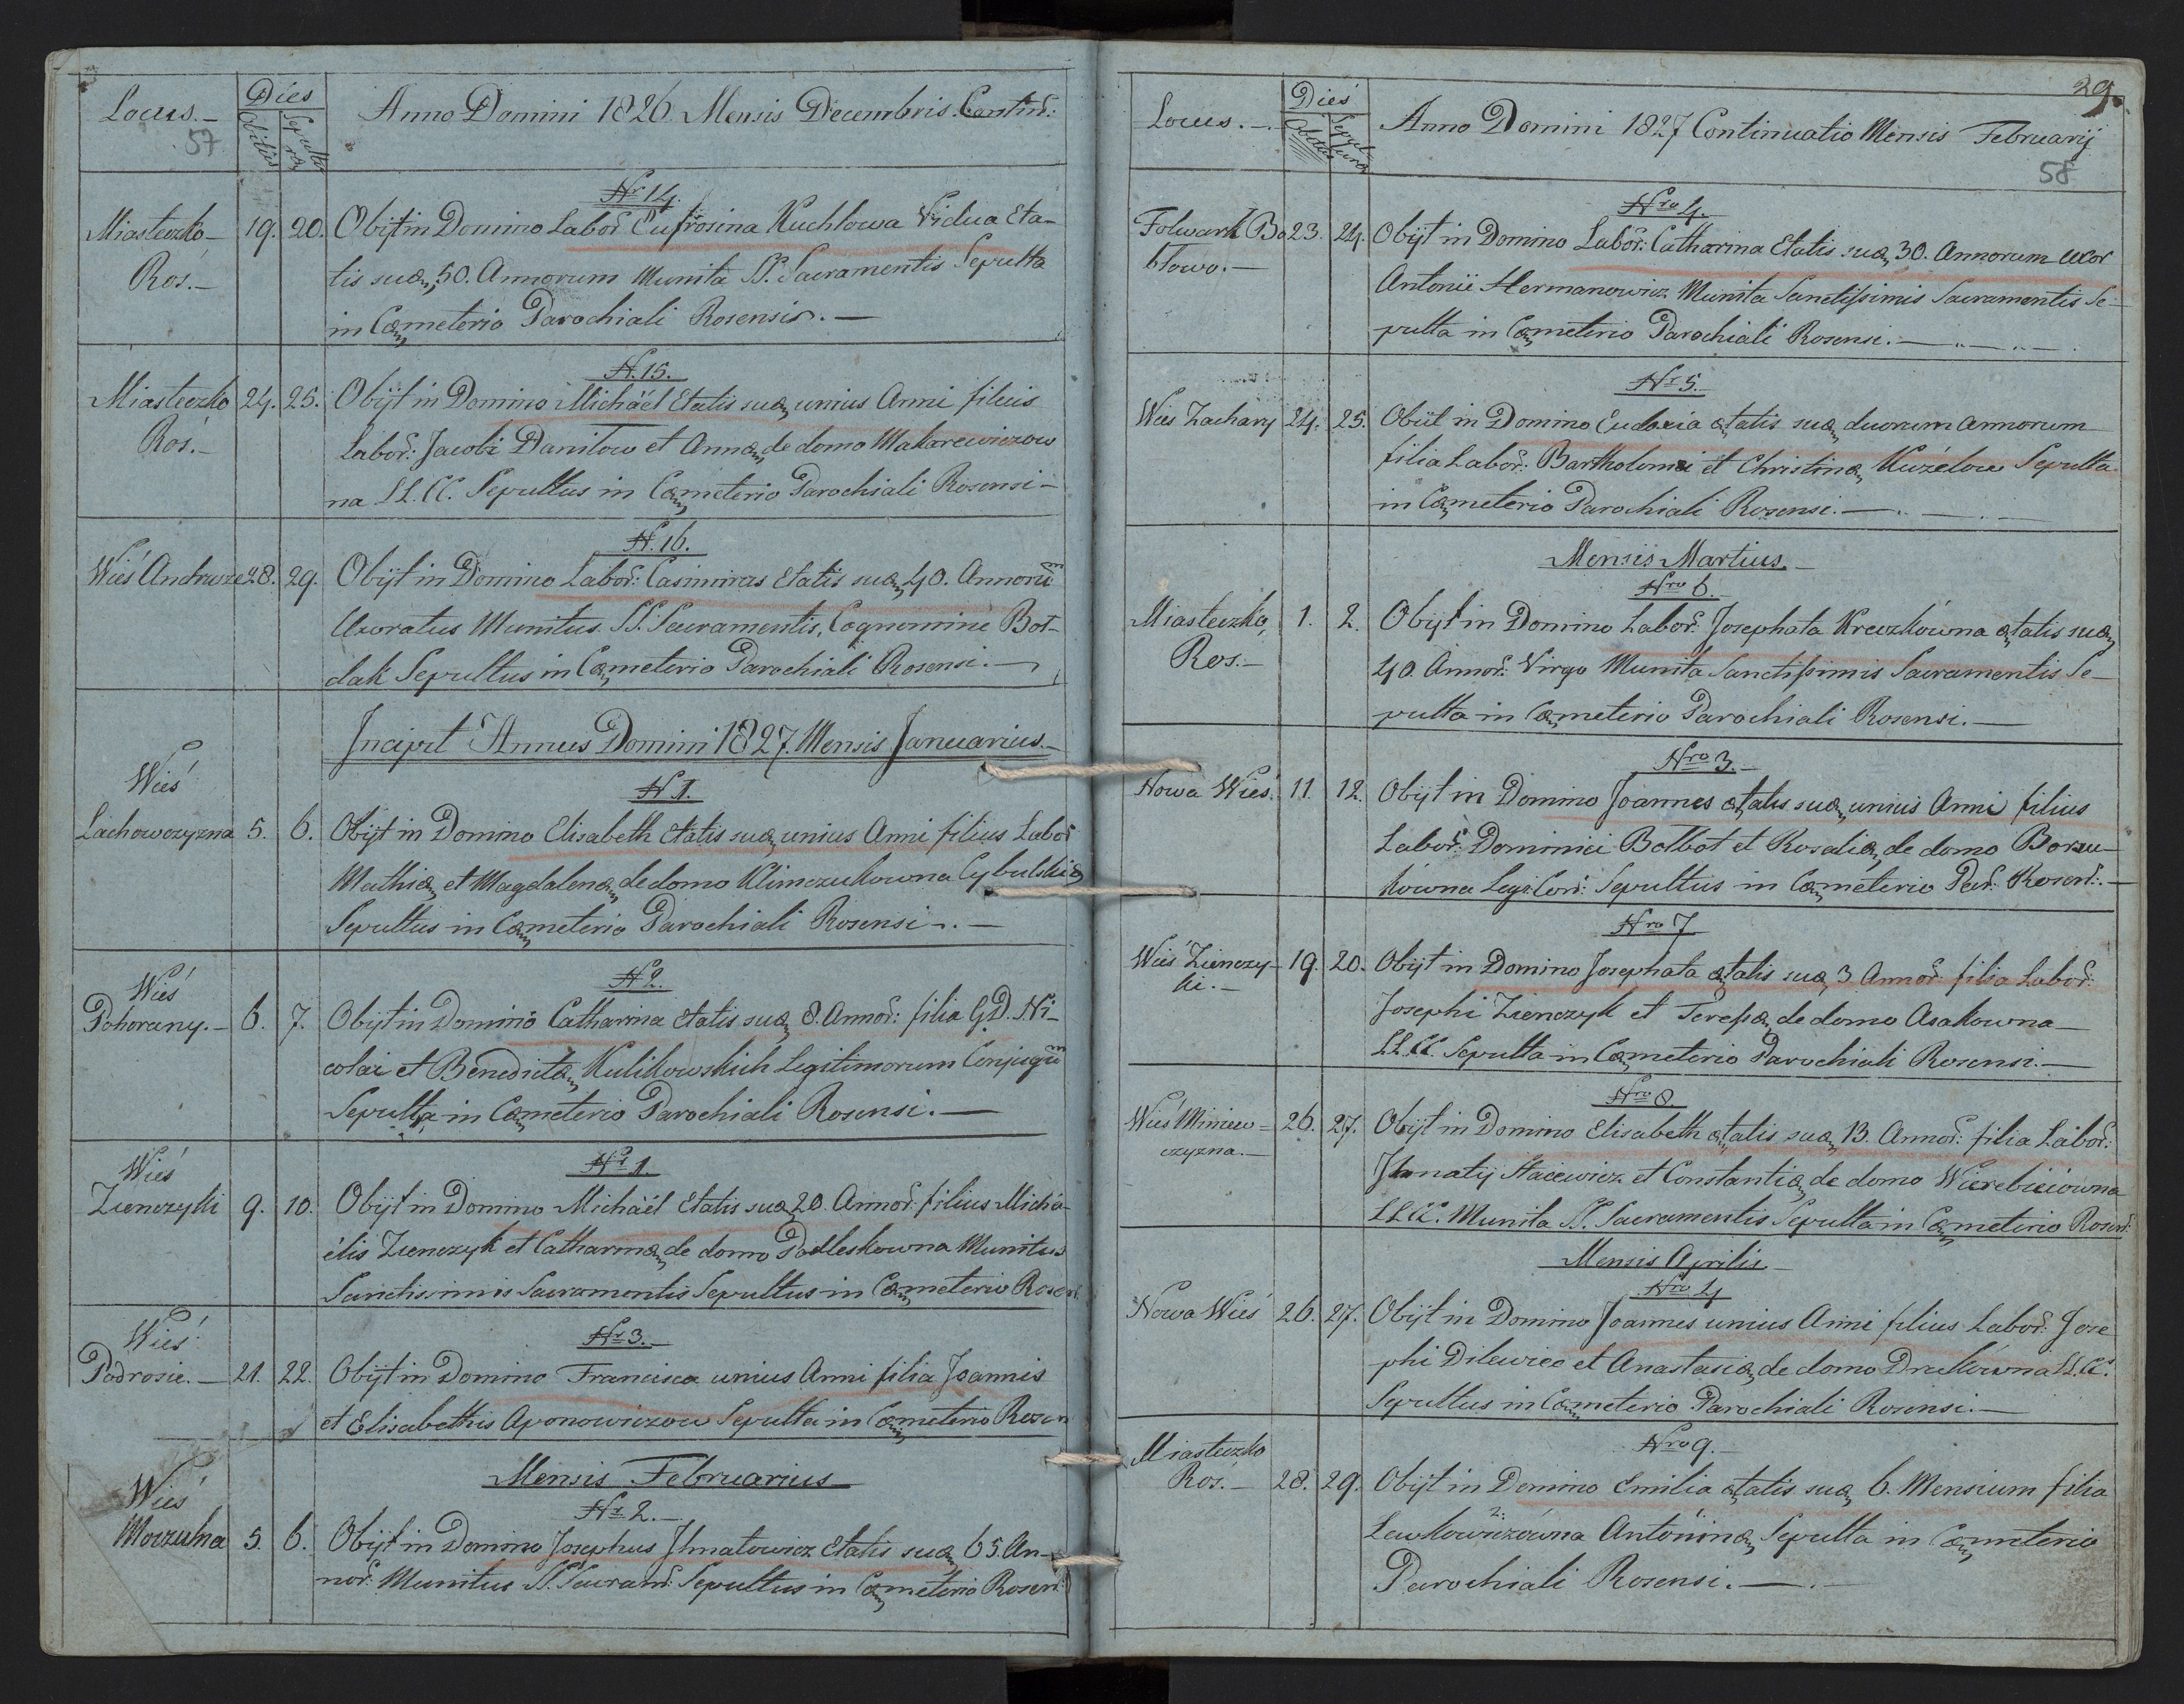 Locus.-
57
Dies
Obitus
Sepultura
Anno Domini 1826. Mensis Decembris. Contin:
Nr 14.
Miasteczko Roś.-
19. 20.
Obijt in Domino Labor: Eufrosina Kuchlowa Vidua Eta-
tis suæ, 50. Annorum Munita SS. Sacramentis Sepulta
in Cæmeterio Parochiali Rosensis.-
N. 15.
Miasteczko Roś.-
24. 25.
Obijt in Domino Michaël Etatis suæ unius Anni filius
Labor: Jacobi Danilow et Annæ de domo Makarewiczow
na LL.CC. Sepultus in Cæmeterio Parochiali Rosensi-
N. 16.
Wieś Andruze
28. 29.
Obijt in Domino Labor: Casimirus Etatis suæ 40. Annorũ
Uxoratus Munitus SS. Sacramentis, Cognomine Boł-
dak Sepultus in Cæmeterio Parochiali Rosensi.-
Incipit Annus Domini 1827. Mensis Januarius.-
N 1.
Wieś Lachowczyzna
5. 6.
Obijt in Domino Elisabeth Etatis suæ unius Anni filius Labor
Mathiæ et Magdalenæ de domo Klimczukowna Cybulskiæ
Sepultus in Cæmeterio Parochiali Rosensi-.-
N 2.
Wieś Pohorany.-
6. 7.
Obijt in Domino Catharina Etatis suæ 8. Annor: filia G.D. Ni-
colai et Benedictæ Kulikowskich Legitimorum Conjugũ
Sepulta in Cæmeterio Parochiali Rosensi.-
Nr 1.
Wieś Zienczyki
9. 10.
Obijt in Domino Michaël Etatis suæ 20. Annor: filius Micha-
ëlis Zienczyk et Catharinæ de domo Podleskowna Munitus
Sanctissimis Sacramentis Sepultus in Cæmeterio Rosen
Nr 3.-
Wieś Podrosie.-
21. 22.
Obijt in Domino Francisca unius Anni filia Joannis
et Elisabethis Aponowiczow Sepulta in Cæmeterio Rosen
Mensis Februarius
Nr 2.-
Wieś Moczulna
5. 6.
Obijt in Domino Josephus Ihnatowicz Etatis suæ 65. An-
nor: Munitus SS. Sacram: Sepultus in Cæmeterio Rosen:
29.
Locus.-
Dies
Obitus
Sepultura
Anno Domini 1827 Continuatio Mensis Februarij
58
Nro 4.
Folwark Bo
błowo.-
23. 24.
Obijt in Domino Labor: Catharina Etatis suæ 30. Annorum uxor
Antonii Hermanowicz Munita Sanctissimis Sacramentis Se-
pulta in Cæmeterio Parochiali Rosensi.-
Nr 5.
Wieś Zachary
24. 25.
Obiit in Domino Eudoxia ætatis suæ duorum annorum
filia Labor: Bartholomæi et Christinæ Kuzelow Sepulta
in Cæmeterio Parochiali Rosensi.-
Mensis Martius.-
Nro 6.-
Miasteczko, Ros.-
1. 2.
Obijt in Domino Labor: Josephata Kreczkówna ætatis suæ
40. Annor: Virgo Munita Sanctissimis Sacramentis Se-
pulta in Cæmeterio Parochiali Rosensi.-
Nro 3.-
Nowa Wieś.
11. 12.
Obijt in Domino Joannes ætatis suæ unius Anni filius
Labor: Dominici Bolbot et Rosaliæ de domo Borsu-
kówna Legi: Con: Sepultus in Cæmeterio Par: Rosen:.-
Nro 7
Wieś Zienczy-
ki.-
19. 20.
Obijt in Domino Josephata ætatis suæ 3 Annor: filia Labor:
Josephi Zienczyk et Teressæ de domo Asakowna-
LL.CC. Sepulta in Cæmeterio Parochiali Rosensi.-
Nro 8.
Wieś Miniew=
czyzna.-
26. 27.
Obijt in Domino Elisabeth ætatis suæ 13. Annor: filia Labor:
Ihnatij Stacewicz et Constantiæ de domo Wierebieiówna
LL.CC. Munita SS. Sacramentis Sepulta in Cæmeterio Rosen:
Mensis Aprilis-
Nro 4
Nowa Wieś
26. 27.
Obijt in Domino Joannes unius Anni filius Labor: Jose
phi Dilewicz et Anastasiæ de domo Drukówna LL.CC.
Sepultus in Cæmeterio Parochiali Rosensi.-
Nro 9.-
Miasteczko Roś.-
28. 29.
Obijt in Domino Emilia ætatis suæ 6. Mensium filia
Lewkowiczówna Antoninæ Sepulta in Cæmeterio
Parochiali Rosensi.-